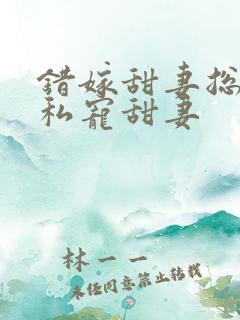 错嫁甜妻总
私宠甜妻
林一一
未经同意禁止转载